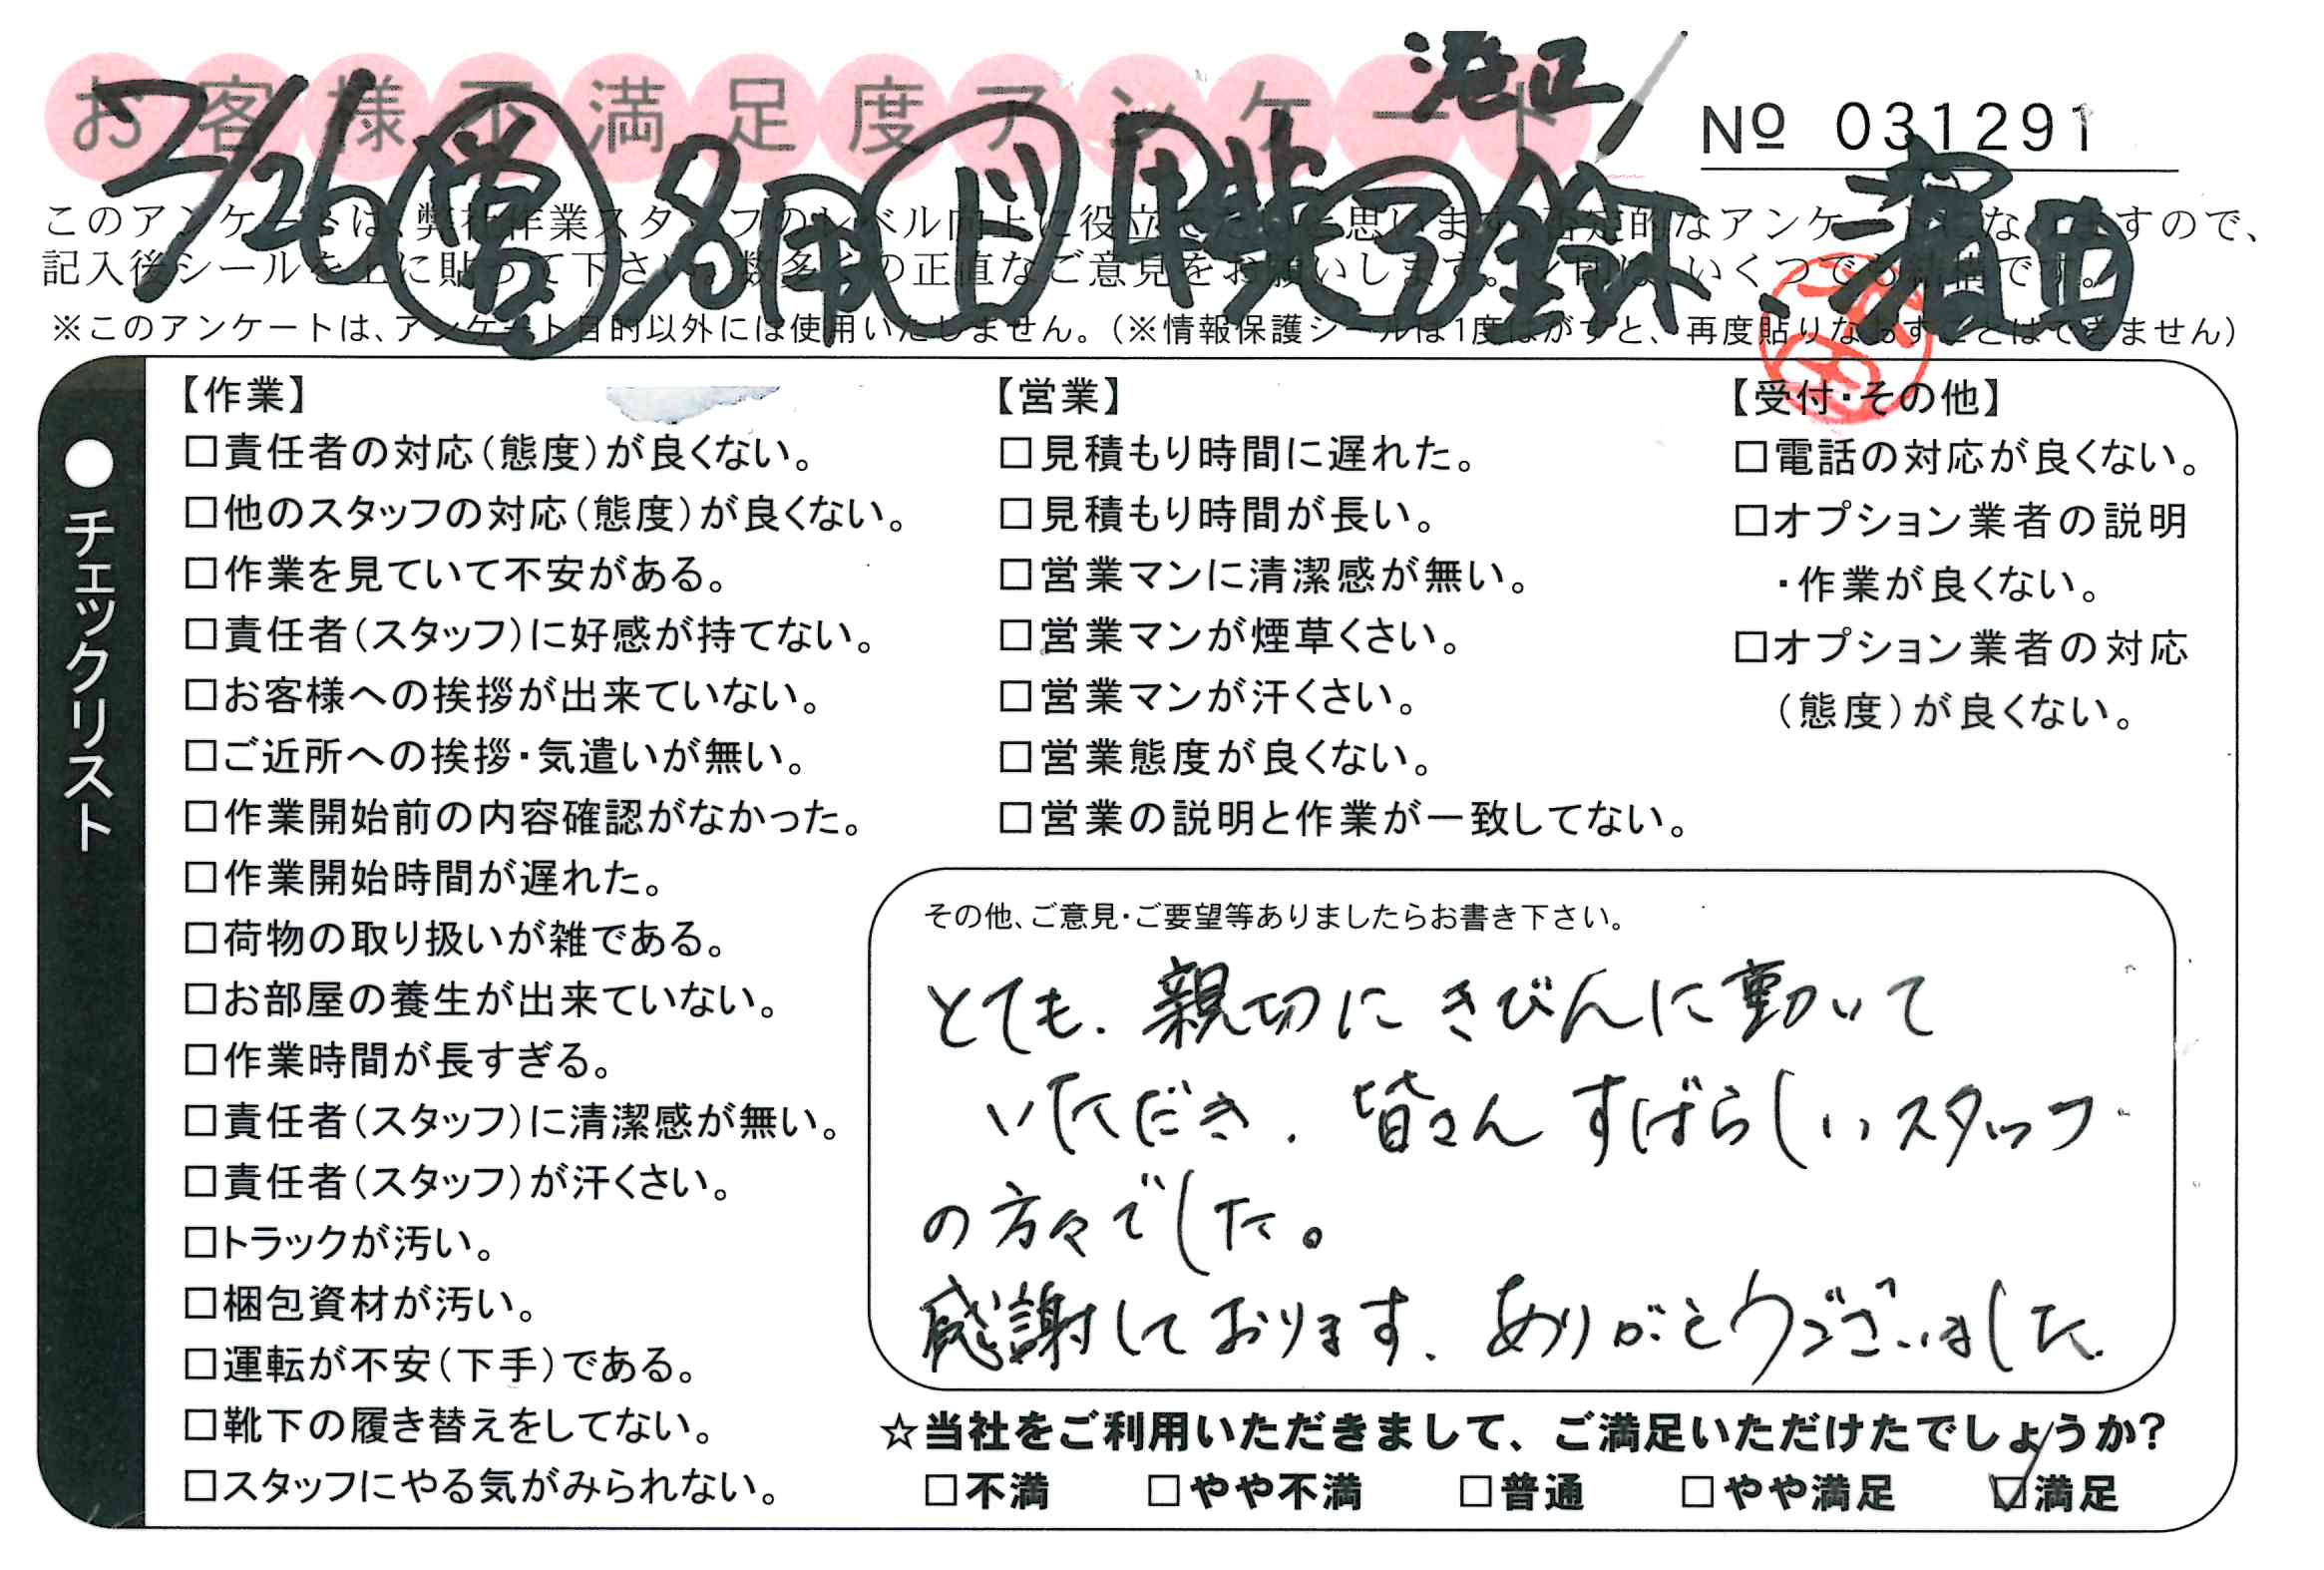 お客様不満足度アンケート
港正
Nº 031291
7/26 営
このアンケートは、弊社作業スタッフのレベル向上に役立
思います
定的なアンケー
な
すので、
記入後シールを上に貼って下さい
数多くの正直なご意見をお願いします。
いくつでも
です。
※このアンケートは、アンケート目的以外には使用いたしません。(※情報保護シールは1度はがすと、再度貼りなおすことはできません)
●チェックリスト
【作業】
□責任者の対応(態度)が良くない。
□他のスタッフの対応(態度)が良くない。
□作業を見ていて不安がある。
□責任者(スタッフ)に好感が持てない。
□お客様への挨拶が出来ていない。
□ご近所への挨拶・気遣いが無い。
□作業開始前の内容確認がなかった。
□作業開始時間が遅れた。
□荷物の取り扱いが雑である。
□お部屋の養生が出来ていない。
□作業時間が長すぎる。
□責任者(スタッフ)に清潔感が無い。
□責任者(スタッフ)が汗くさい。
□トラックが汚い。
□梱包資材が汚い。
□運転が不安(下手)である。
□靴下の履き替えをしてない。
□スタッフにやる気がみられない。
【営業】
□見積もり時間に遅れた。
□見積もり時間が長い。
□営業マンに清潔感が無い。
□営業マンが煙草くさい。
□営業マンが汗くさい。
□営業態度が良くない。
□営業の説明と作業が一致してない。
【受付・その他】
□電話の対応が良くない。
□オプション業者の説明
・作業が良くない。
□オプション業者の対応
(態度)が良くない。
その他、ご意見・ご要望等ありましたらお書き下さい。
とても、親切に きびんに動いて
いただき、皆さん すばらしいスタッフ
の方々でした。
感謝しております、ありがとうございました
☆当社をご利用いただきまして、ご満足いただけたでしょうか?
□不満 □やや不満 □普通 □やや満足 ☑満足